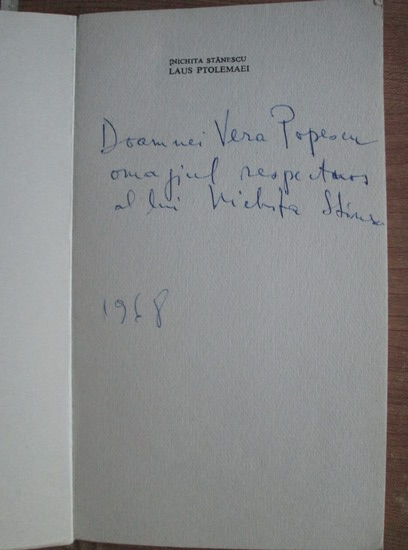 NICHITA STĂNESCU
LAUS PTOLEMAEI
Doamnei Vera Popescu
omagiul respectuos
al lui Nichita Stănescu
1968